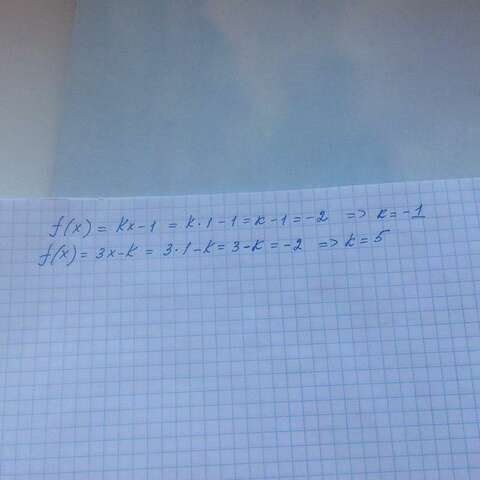 f(x) = kx-1 = k·1-1 = k-1 = -2 => k = -1
f(x) = 3x-k = 3·1-k = 3-k = -2 => k = 5